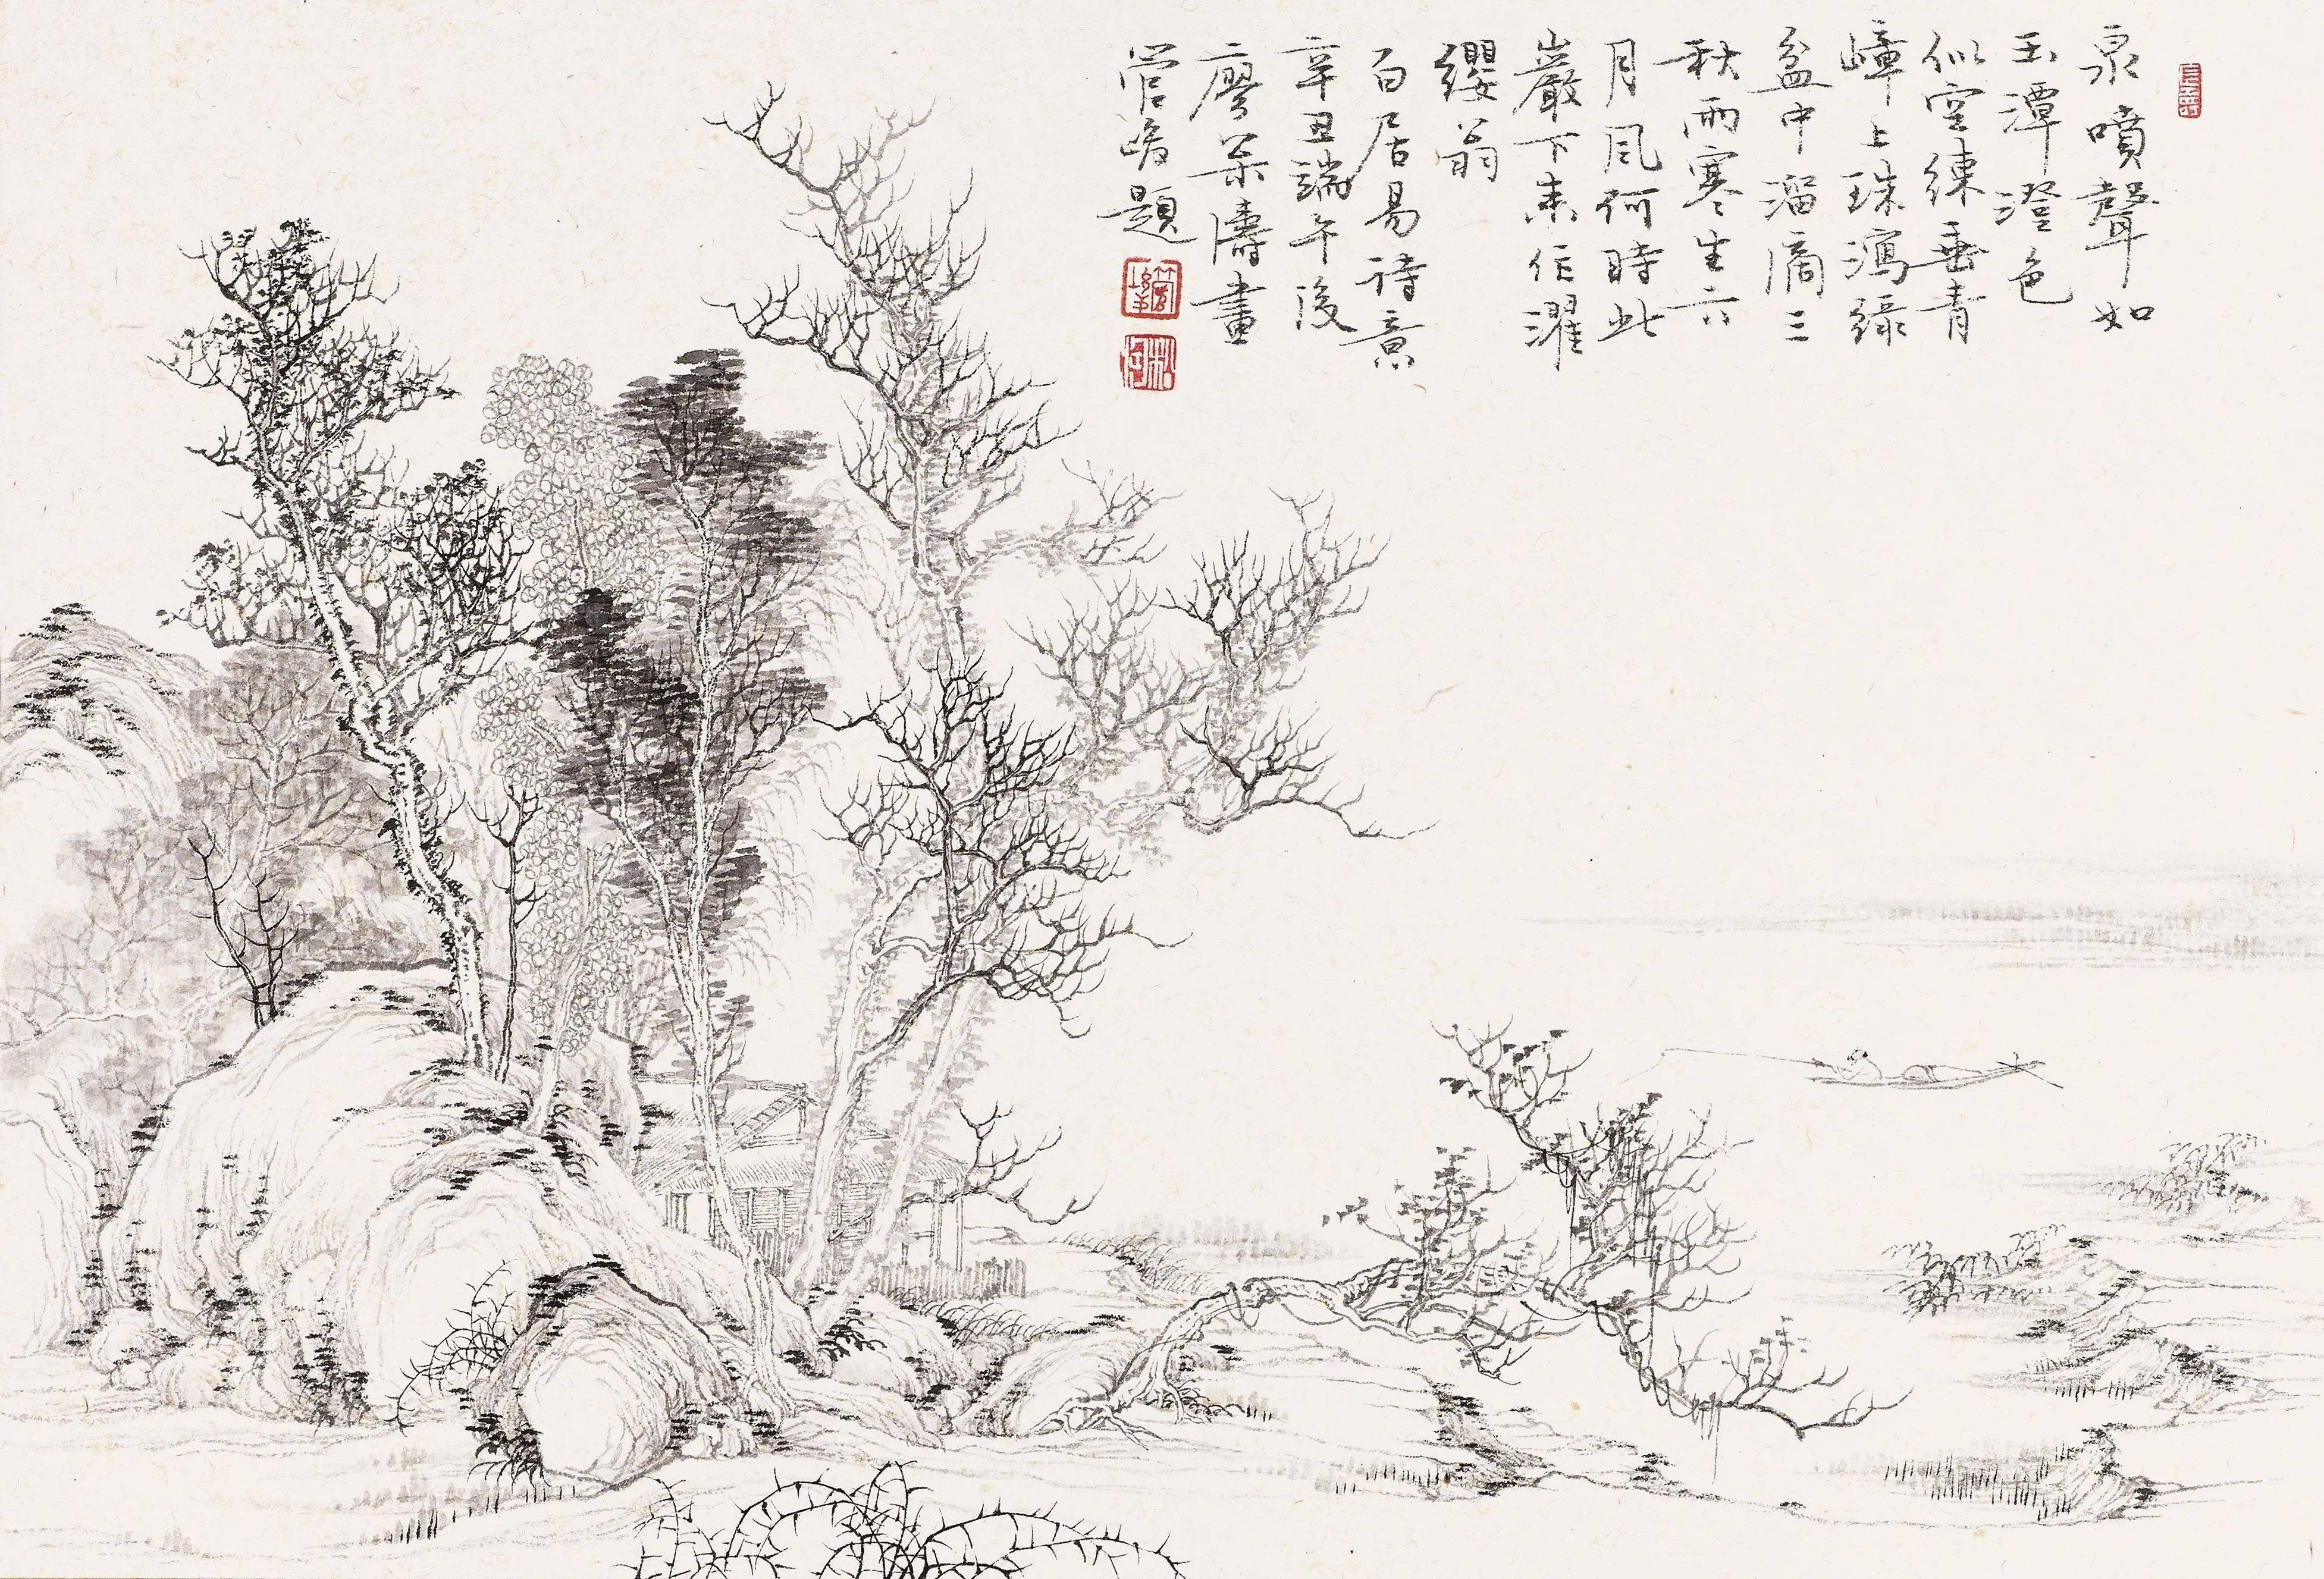 泉噴聲如
玉潭澄色
似空練垂青
嶂上珠瀉綠
盆中溜滴三
秋雨寒生六
月風何時此
巖下來作濯
纓翁
白居易詩意
辛丑端午後
廖濤畫
管峻題